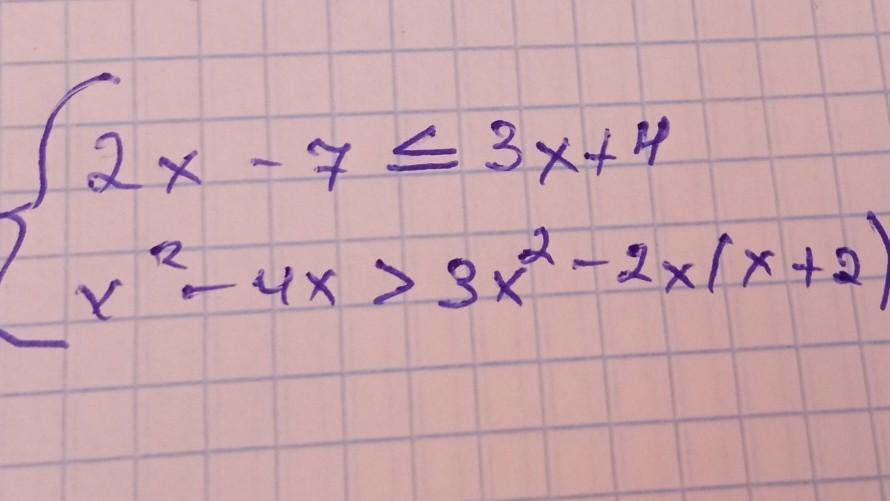 2x - 7 ≤ 3x + 4
x² - 4x > 3x² - 2x(x + 2)